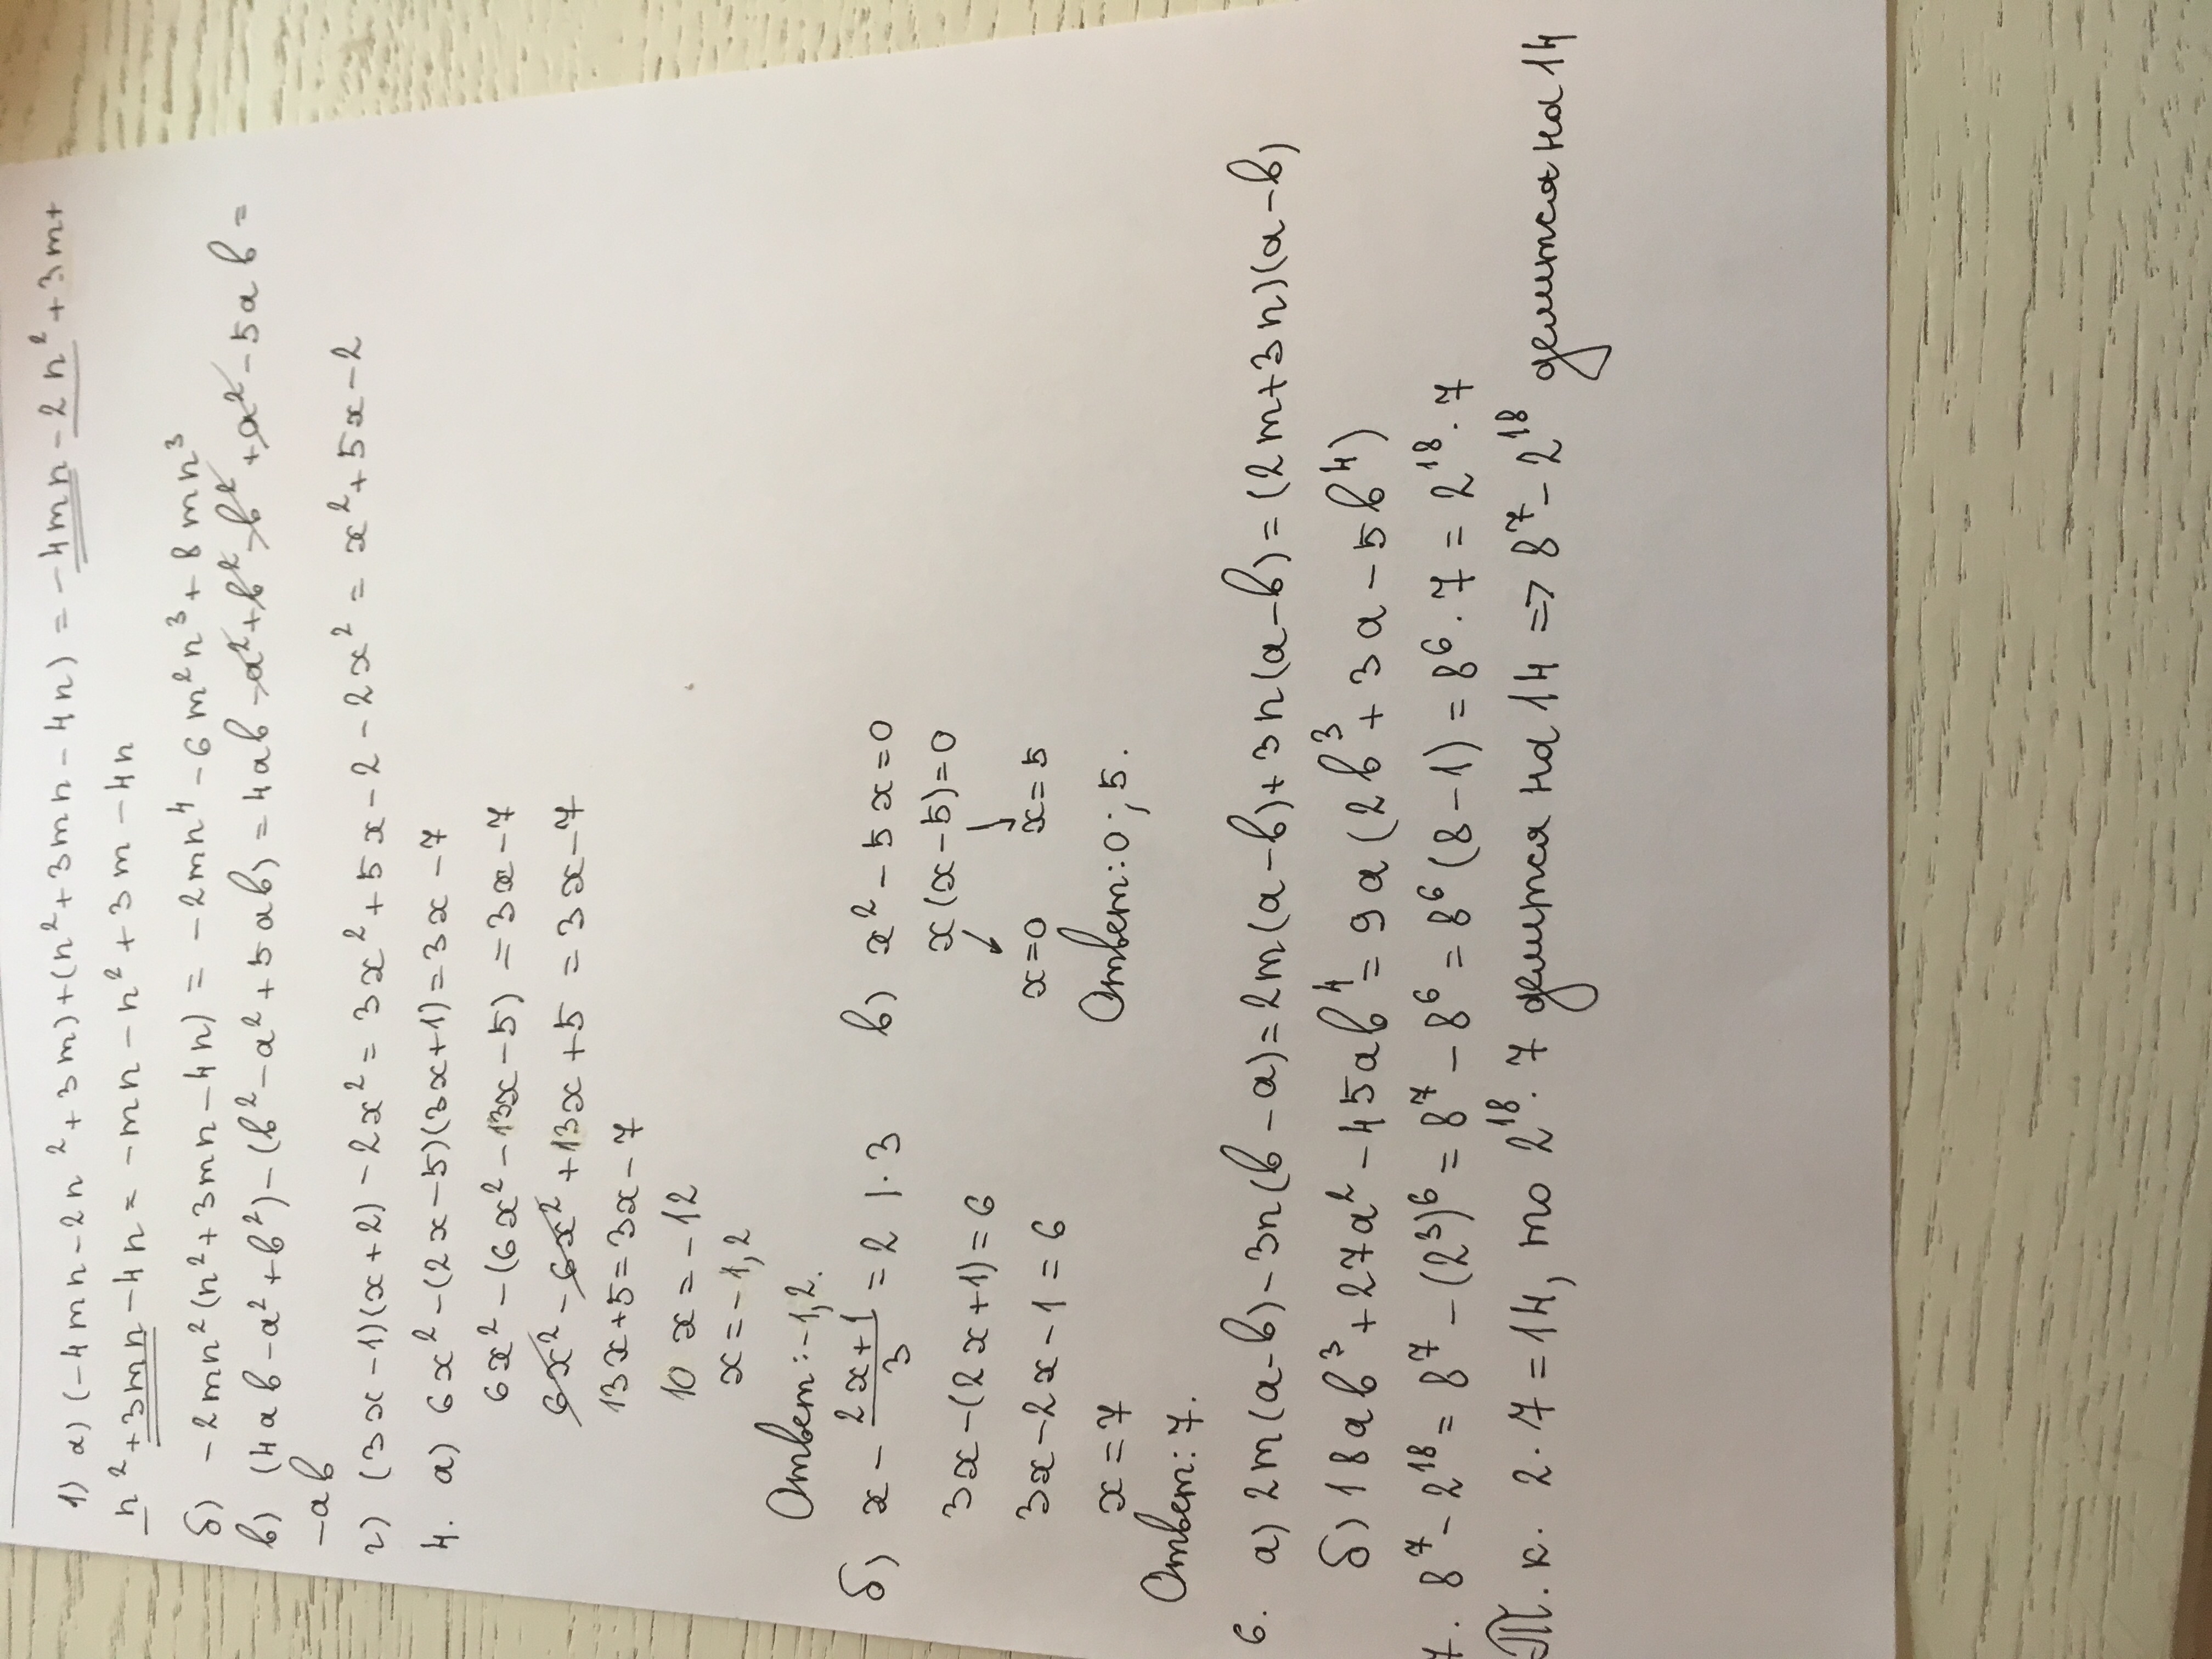 1) а) (-4mn-2n²+3m)+(n²+3mn-4n) = -4mn-2n²+3m+
n²+3mn-4n = -mn-n²+3m-4n
б) -2mn²(n²+3mn-4n) = -2mn⁴-6m²n³+8mn³
в) (4ab-a²+b²)-(b²-a²+5ab) = 4ab-a²+b²-b²+a²-5ab =
-ab
г) (3x-1)(x+2)-2x² = 3x²+5x-2-2x² = x²+5x-2
4. а) 6x²-(2x-5)(3x+1)=3x-7
6x²-(6x²-13x-5)=3x-7
6x²-6x²+13x+5=3x-7
13x+5=3x-7
10x=-12
x=-1,2
Ответ:-1,2.
б) x - \frac{2x+1}{3} = 2 |·3
3x-(2x+1)=6
3x-2x-1=6
x=7
Ответ:7.
в) x²-5x=0
x(x-5)=0
↙ ↘
x=0 x=5
Ответ:0;5.
6. а) 2m(a-b)-3n(b-a)=2m(a-b)+3n(a-b)=(2m+3n)(a-b)
б) 18ab³+27a²-45ab⁴=9a(2b³+3a-5b⁴)
7. 8⁷-2¹⁸=8⁷-(2³)⁶=8⁷-8⁶=8⁶(8-1)=8⁶·7=2¹⁸·7
Т.к. 2·7=14, то 2¹⁸·7 делится на 14 => 8⁷-2¹⁸ делится на 14